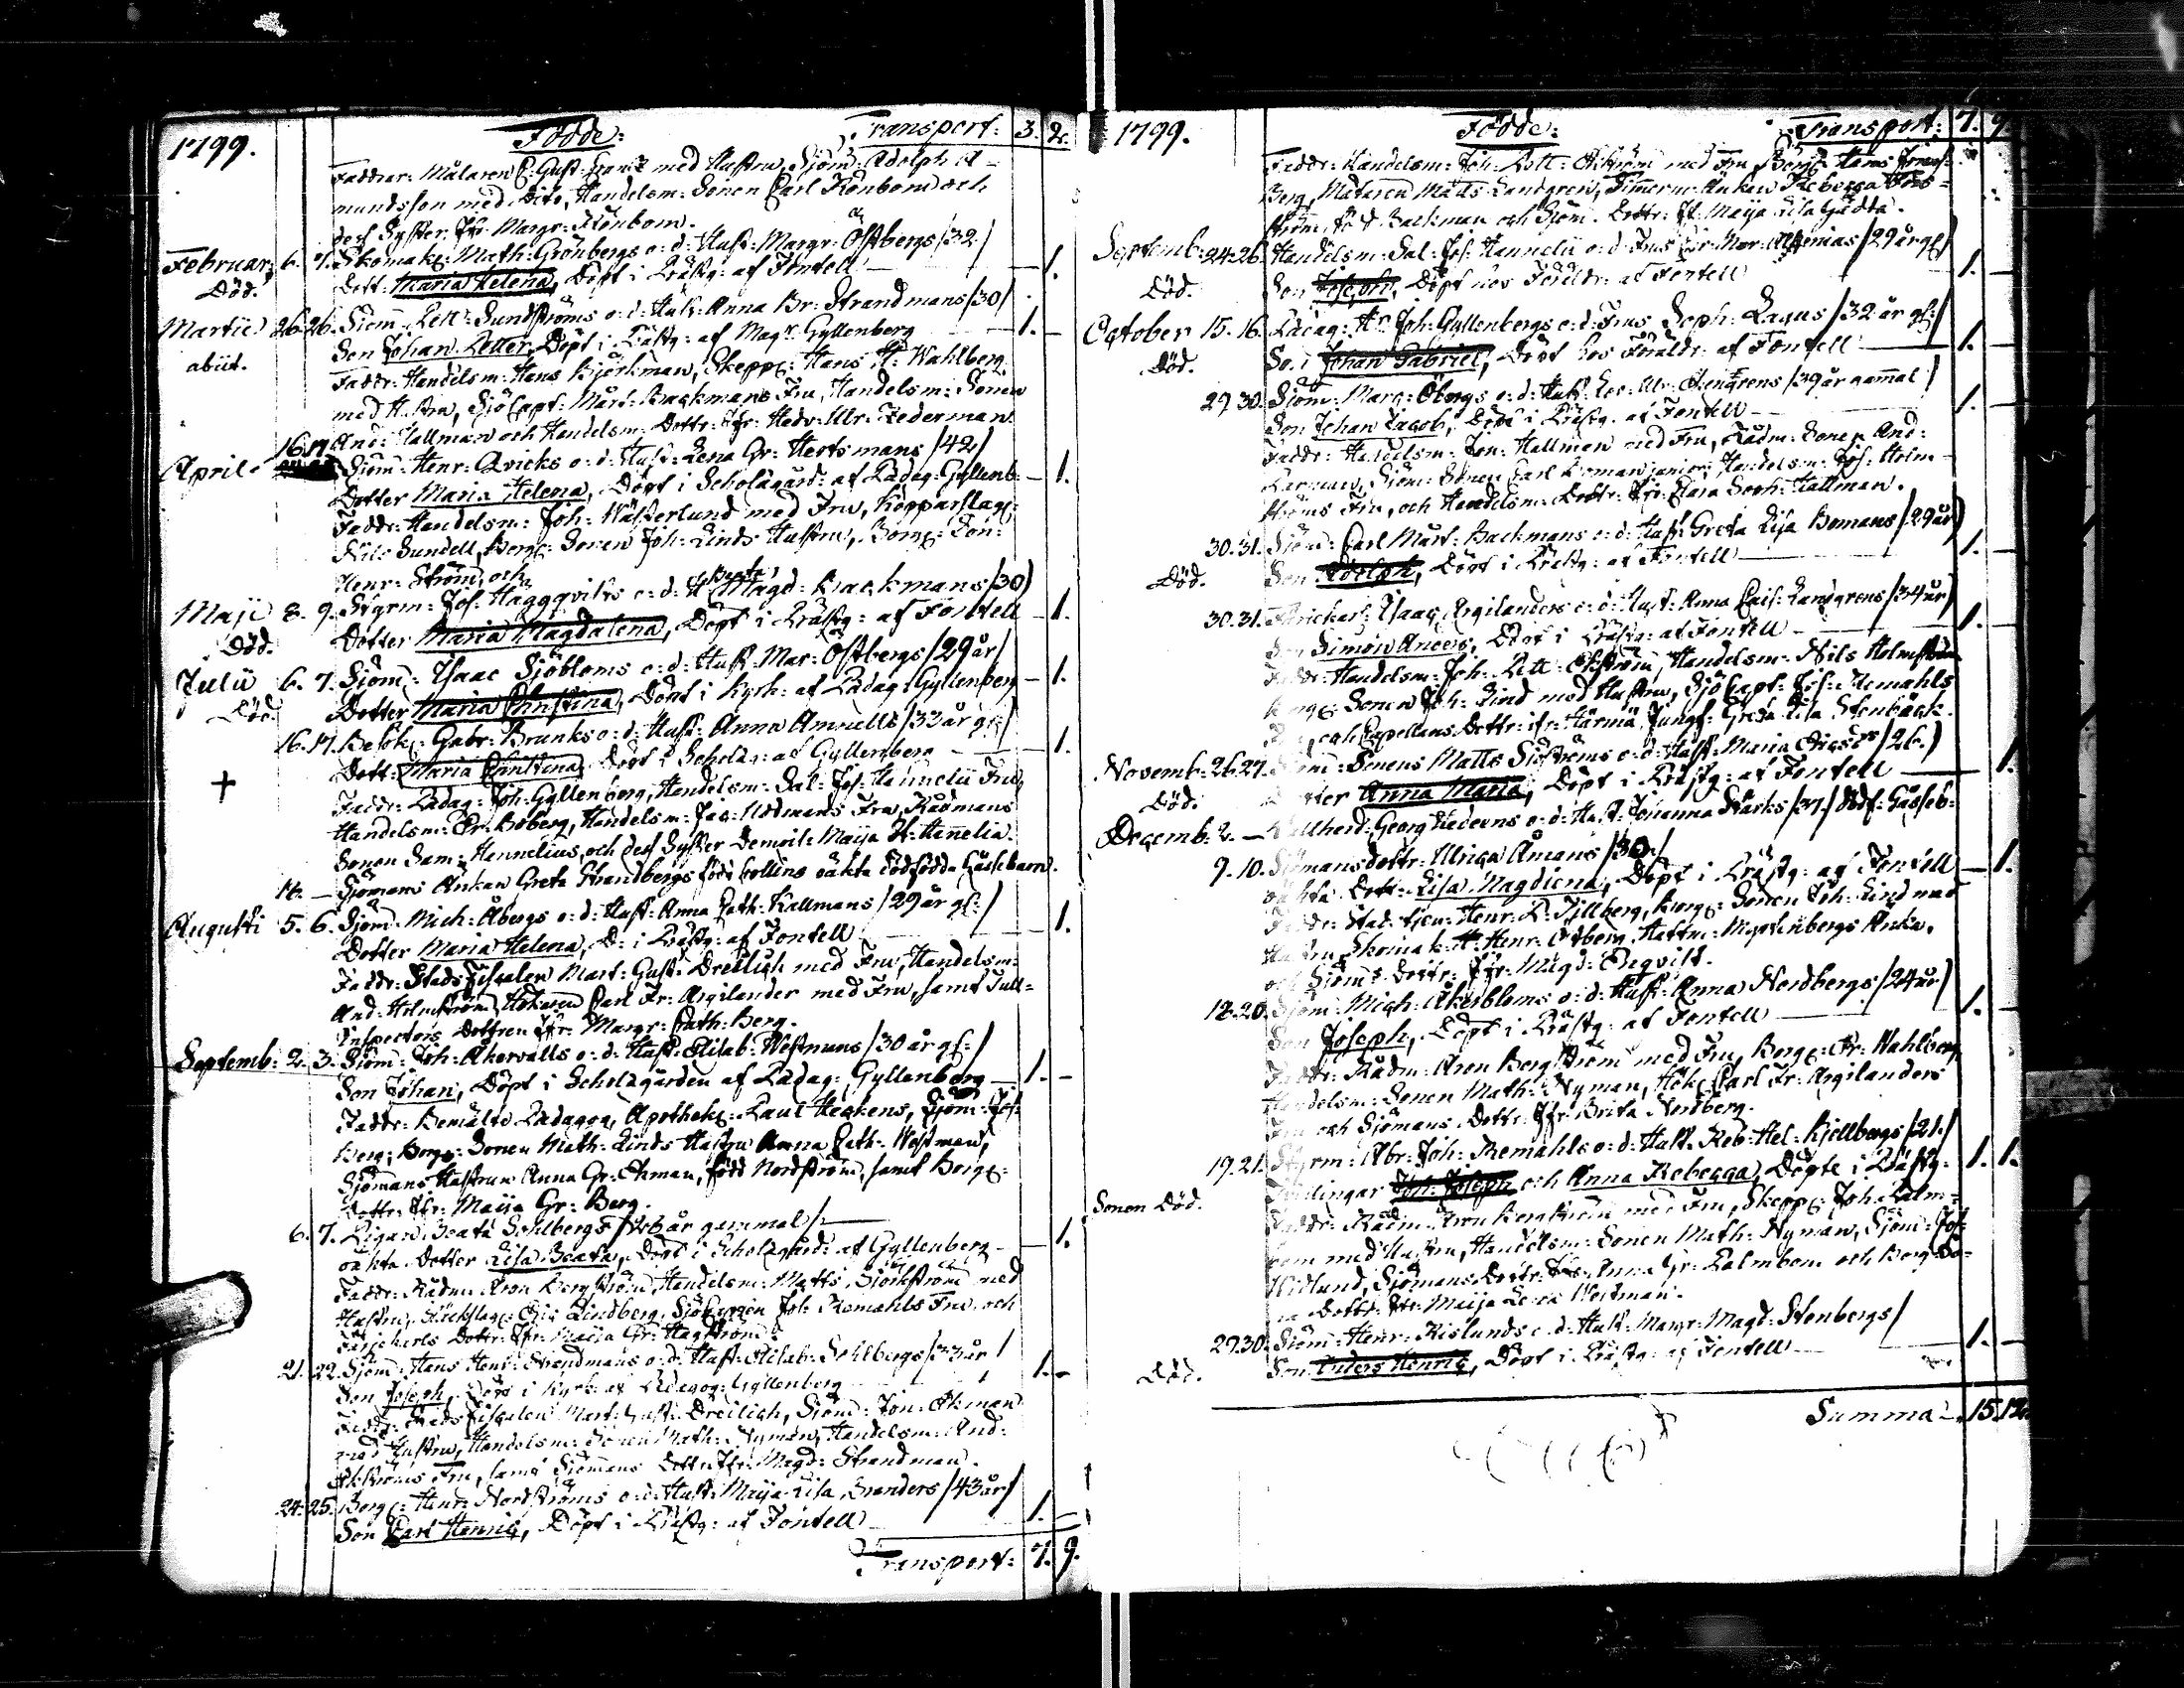 1799. Födde: Transport: 3. 2.
Faddrar: Målaren C: Gust: med Hustru, Sjöm: Adolph A-
mundsson med dito, Handelsm: Sonen Carl Rönbom och
dess Syster Jfr: Margr: Rönbom.
Februar: 6. 7. Skomak: Math: Grönbergs o: d: Hust: Margr: Östbergs /32/
Död. Dott: Maria Helena, Döpt i Prästg: af Fontell — 1.
Martii 26. 26. Sjöm: Pett: Sundströms o: d: Hust: Anna Br: Strandmans /30/
abiit. Son Johan Petter, Döpt i Prästg: af Mag:r Gyllenberg — 1. —
Faddr: Handelsm: Hans Björkman, Skepp: Hans H: Wahlberg
med Hustru, SjöCapt: Mårt: Backmans Fru, Handelsm: Sonen
And: Hallman och Handelsm: Dottr: Jfr: Hedv: Ulr: Federman.
April 16. 17. Sjöm: Henr: Qvicks o: d: Hust: Lena Gr: Hertsmans /42/
Dotter Maria Helena, Döpt i Scholagård: af Pädag: Gyllenb: — 1.
Faddr: Handelsm: Joh: Wästerlund med Fru, Kopparslag:
Nils Sundell, Borg: Sonen Joh: Linds Hustru, Borg: Son:
Henr: Ström, och
Maji 8. 9. Styrm: Jos: Haggqvists o: d: H: Beata Magd: Backmans /30/
Död. Dotter Maria Magdalena, Döpt i Prästg: af Fontell — 1.
Julii 6. 7. Sjöm: Isaac Sjöbloms o: d: Hust: Mar: Östbergs /29 år/
Död. Dotter Maria Christina, Döpt i Kyrk: af Pädag: Gyllenberg — 1.
16. 17. Besök: Gabr: Brunks o: d: Hust: Anna Amnells /33 år gl:/
Dott: Maria Christina, Döpt i Scholag: af Gyllenberg — 1.
+ Faddr: Pädag: Joh: Gyllenberg, Handelsm: Sal: Jos: Hannelii Fru,
Handelsm: Er: Boberg, Handelsm: Jac: Fru, Rådmans
Sonen Sam: Hannelius, och dess Syster Demois: Maija H: Hannelia.
14. — Sjömans Änkan Greta Strandbergs född Collins oäkta dödfödda Gåssebarn.
Augusti 5. 6. Sjöm: Mich: Åbergs o: d: Hust: Anna Cath: Kallmans /29 år gl:/
Dotter Maria Helena, D: i Prästg: af Fontell — 1.
Faddr: StadsFiscalen Mart: Gust: Dreilich med Fru, Handelsm:
And: Holmström, Carl Fr: Argilander med Fru, samt Tull-
Inspectors Dottren Jfr: Margr: Cath: Berg.
Septemb: 2. 3. Sjöm: Joh: Åkervalls o: d: Hust: Elisab: Westmans /30 år gl:/
Son Johan, Döpt i Scholagården af Pädag: Gyllenberg — 1. —
Faddr: Bemälte Pädagog, Apothek: Paul Heckens, Sjöm: Jos:
Berg, Borg: Sonen Math: Linds Hustru Anna Cath: Westman,
Sjömans Hustrun Anna Gr: Ekman, född Nordström, samt Borg:
Dottr: Jfr: Maija Gr: Berg.
6. 7. Pigan Beata Sohlbergs /26 år gammal/
oäkta Dotter Lisa Beata, Döpt i Scholagård: af Gyllenberg — 1.
Faddr: Rådm: Aron Bergström, Handelsm: Matts Sjöström med
Hustru, Eric Lindberg, SjöCapten Joh: Remahls Fru och
Dottr: Jfr: Maija Gr: Hagström.
21. 22. Sjöm: Hans Henr: Strandmans o: d: Hust: Elisab: Sohlbergs /33 år/
Son Joseph, Döpt i Kyrk: af Pädagog: Gyllenberg — 1. —
Faddr: StadsFiscalen Mart: Gust: Dreilich, Sjöm: Jon: Ekman
med Hustru, Handelsm: Sonen Math: Nyman, Handelsm: And:
Ekströms Fru, samt Sjömans Dottr: Jfr: Magd: Strandman.
24. 25. Borg: Henr: Nordströms o: d: Hust: Maija Lisa Branders /43 år/
Son Carl Henric, Döpt i Prästg: af Fontell — 1. —
Transport: 7. 9.
1799. Födde: Transport: 7. 9.
Faddr: Handelsm: Joh: Pett: Ekström med Fru, Borg: Hans
Berg, Målaren Matts Landgren, Timerm: Änkan Rebecca
ström född Backman och Sjöm: Dottr: Jfr: Maija Lisa
Septemb: 24. 26. Handelsm: Sal: Jos: Hannelii o: d: Frus Mar: /29 år gl:/
Död. Son Joseph, Döpt hos Föräldr: af Fontell — 1. —
October 15. 16. Pädag: Hr Joh: Gyllenbergs o: d: Frus Soph: Lagus /32 år gl:/
Död. Son Johan Gabriel, Döpt hos Föräldr: af Fontell — 1. —
29. 30. Sjöm: Marc: Öbergs o: d: Hust: Ulr: /39 år gammal/
Son Johan Jacob, Döpt i Prästg: af Fontell — 1. —
Faddr: Handelsm: Jon: Hallman med Fru, Rådm: Sonen And:
Sjöm: Sonen Carl junior, Handelsm: Jos: Holm-
ströms Fru, och Handelsm: Dottr: Jfr: Clara Soph: Hallman.
30. 31. Sjöm: Carl Mårt: Backmans o: d: Hust: Greta Lisa Bomans /29 år/
Död. Son Adolph, Döpt i Prästg: af Fontell — 1. —
30. 31. Isaac Argilanders o: d: Hust: Anna Cais: Landgrens /34 år/
Son Simon Anders, Döpt i Prästg: af Fontell — 1. —
Faddr: Handelsm: Joh: Pett: Ekström, Handelsm: Nils Holmström
Borg: Sonen Joh: Lind med Hustru, SjöCapt: Jos: Remahls
Fru, och Capellans Dottr: Jfr: Härmä, Jungf: Greta Lisa Stenbäck.
Novemb: 26. 27. Sjöm: Sonens Matts Sjöströms o: d: Hust: Maria /26/
Död. Dotter Anna Maria, Döpt i Prästg: af Fontell — 1.
Decemb: 2. — Georg o: d: Hust: Johanna Starks /37/ Dödf: Gåsseb:
9. 10. Sjömansdottr: Ulrica Åmans /30/
oäkta Dott: Lisa Magdlena, Döpt i Prästg: af Fontell — 1.
Faddr: Henr: P: Tillberg, Borg: Sonen Joh: Lind med
Hustru, Skomak: Henr: Östberg, Änka,
och Sjöm:s Dottr: Jfr: Magd: Engvist.
18. 20. Sjöm: Mich: Åkerbloms o: d: Hust: Anna Nordbergs /24 år/
Son Joseph, Döpt i Prästg: af Fontell — 1. —
Faddr: Rådm: Aron Bergström med Fru, Borg: Er: Wahlberg,
Handelsm: Sonen Math: Nyman, Hök: Carl Fr: Argilanders
Fru och Sjömans Dottr: Jfr: Brita Nordberg.
19. 21. Styrm: Abr: Joh: Remahls o: d: Hust: Reb: Hel: Kjellbergs /21/
Tvillingar Joh: Joseph och Anna Rebecca, Döpte i Prästg: 1. 1.
Sonen Död. Faddr: Rådm: Aron Bergström med Fru, Skepp: Joh: Palm-
bom med Hustru, Handelsm: Sonen Math: Nyman, Sjöm: Jos:
Widlund, Sjömans Dottr: Jfr: Anna Gr: Palmbom och Borg: So-
ns Dottr: Jfr: Maija Lena Westman.
29. 30. Sjöm: Henr: Rislunds o: d: Hust: Margr: Magd: Stenbergs/
Död. Son Anders Henric, Döpt i Prästg: af Fontell — 1. —
Summa — 15. 12.